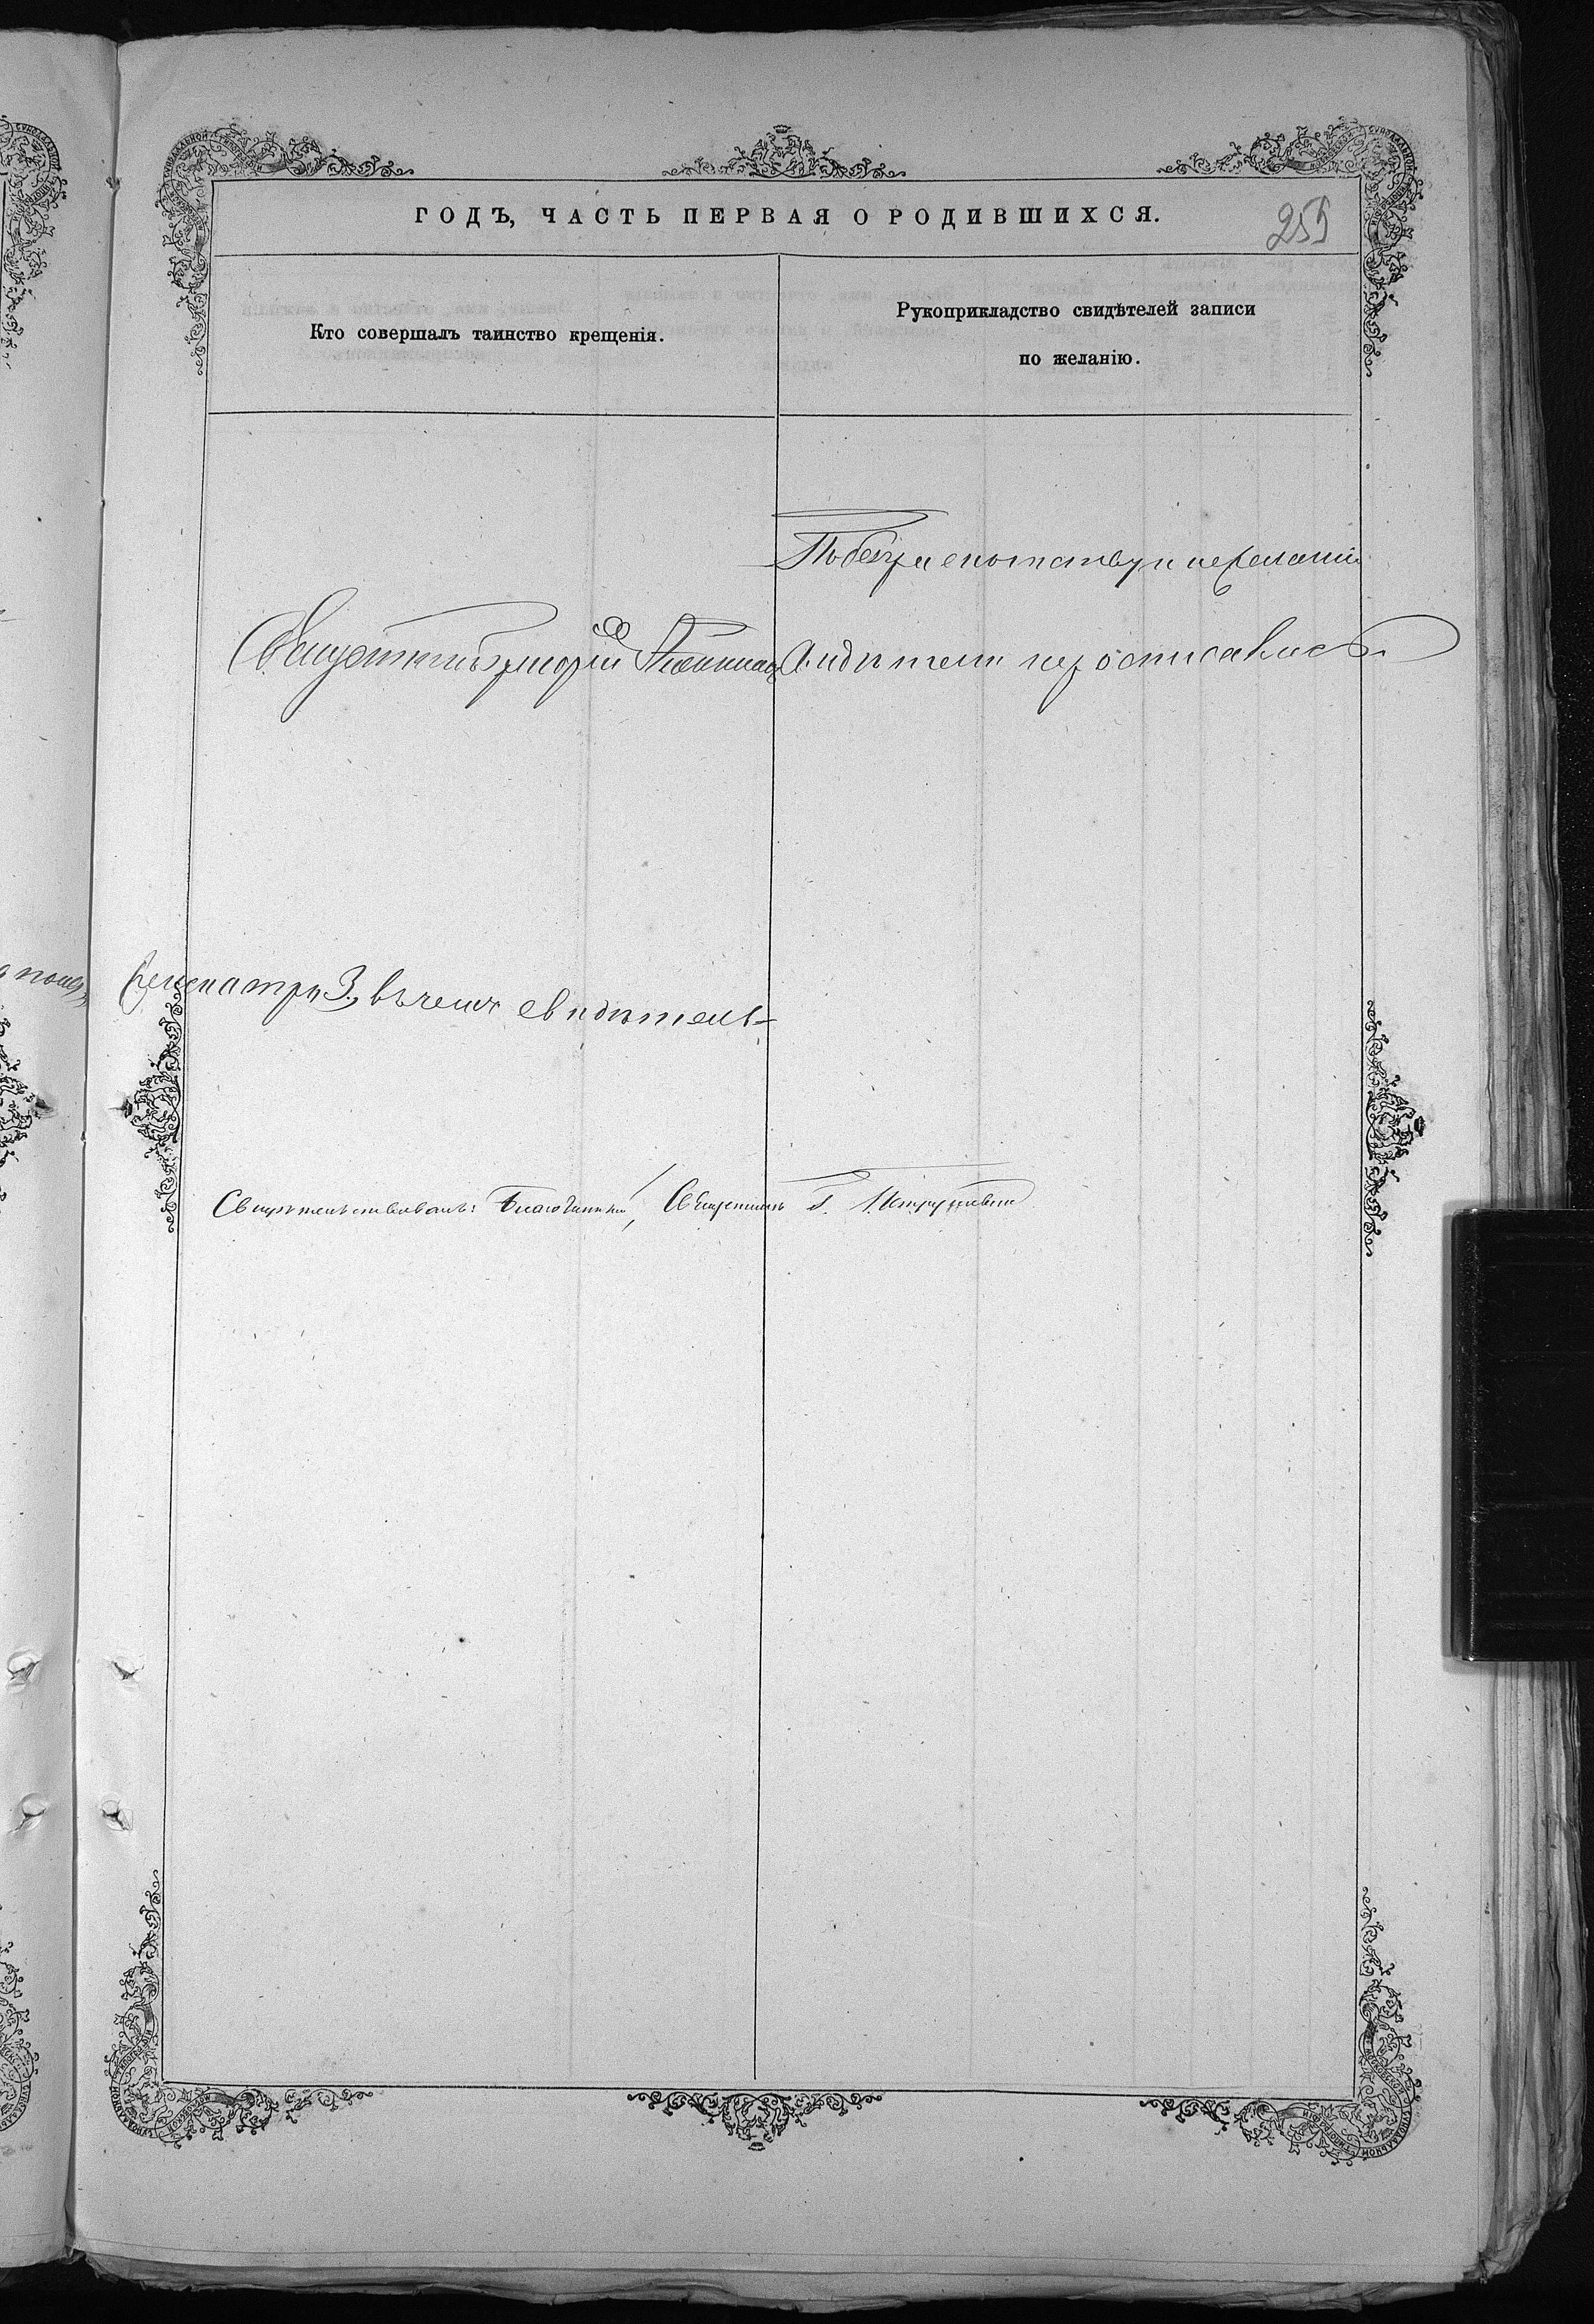 ГОДЪ, ЧАСТЬ ПЕРВАЯ О РОДИВШИХСЯ.
255
Кто совершалъ таинство крещенія.
Рукоприкладство свидѣтелей записи
по желанію.
По безграмотству и нежеланію
Священникъ
свидѣтели не росписались
3, въ чемъ свидѣтель-
Свидѣтельствовалъ: Благочинный, Священникъ